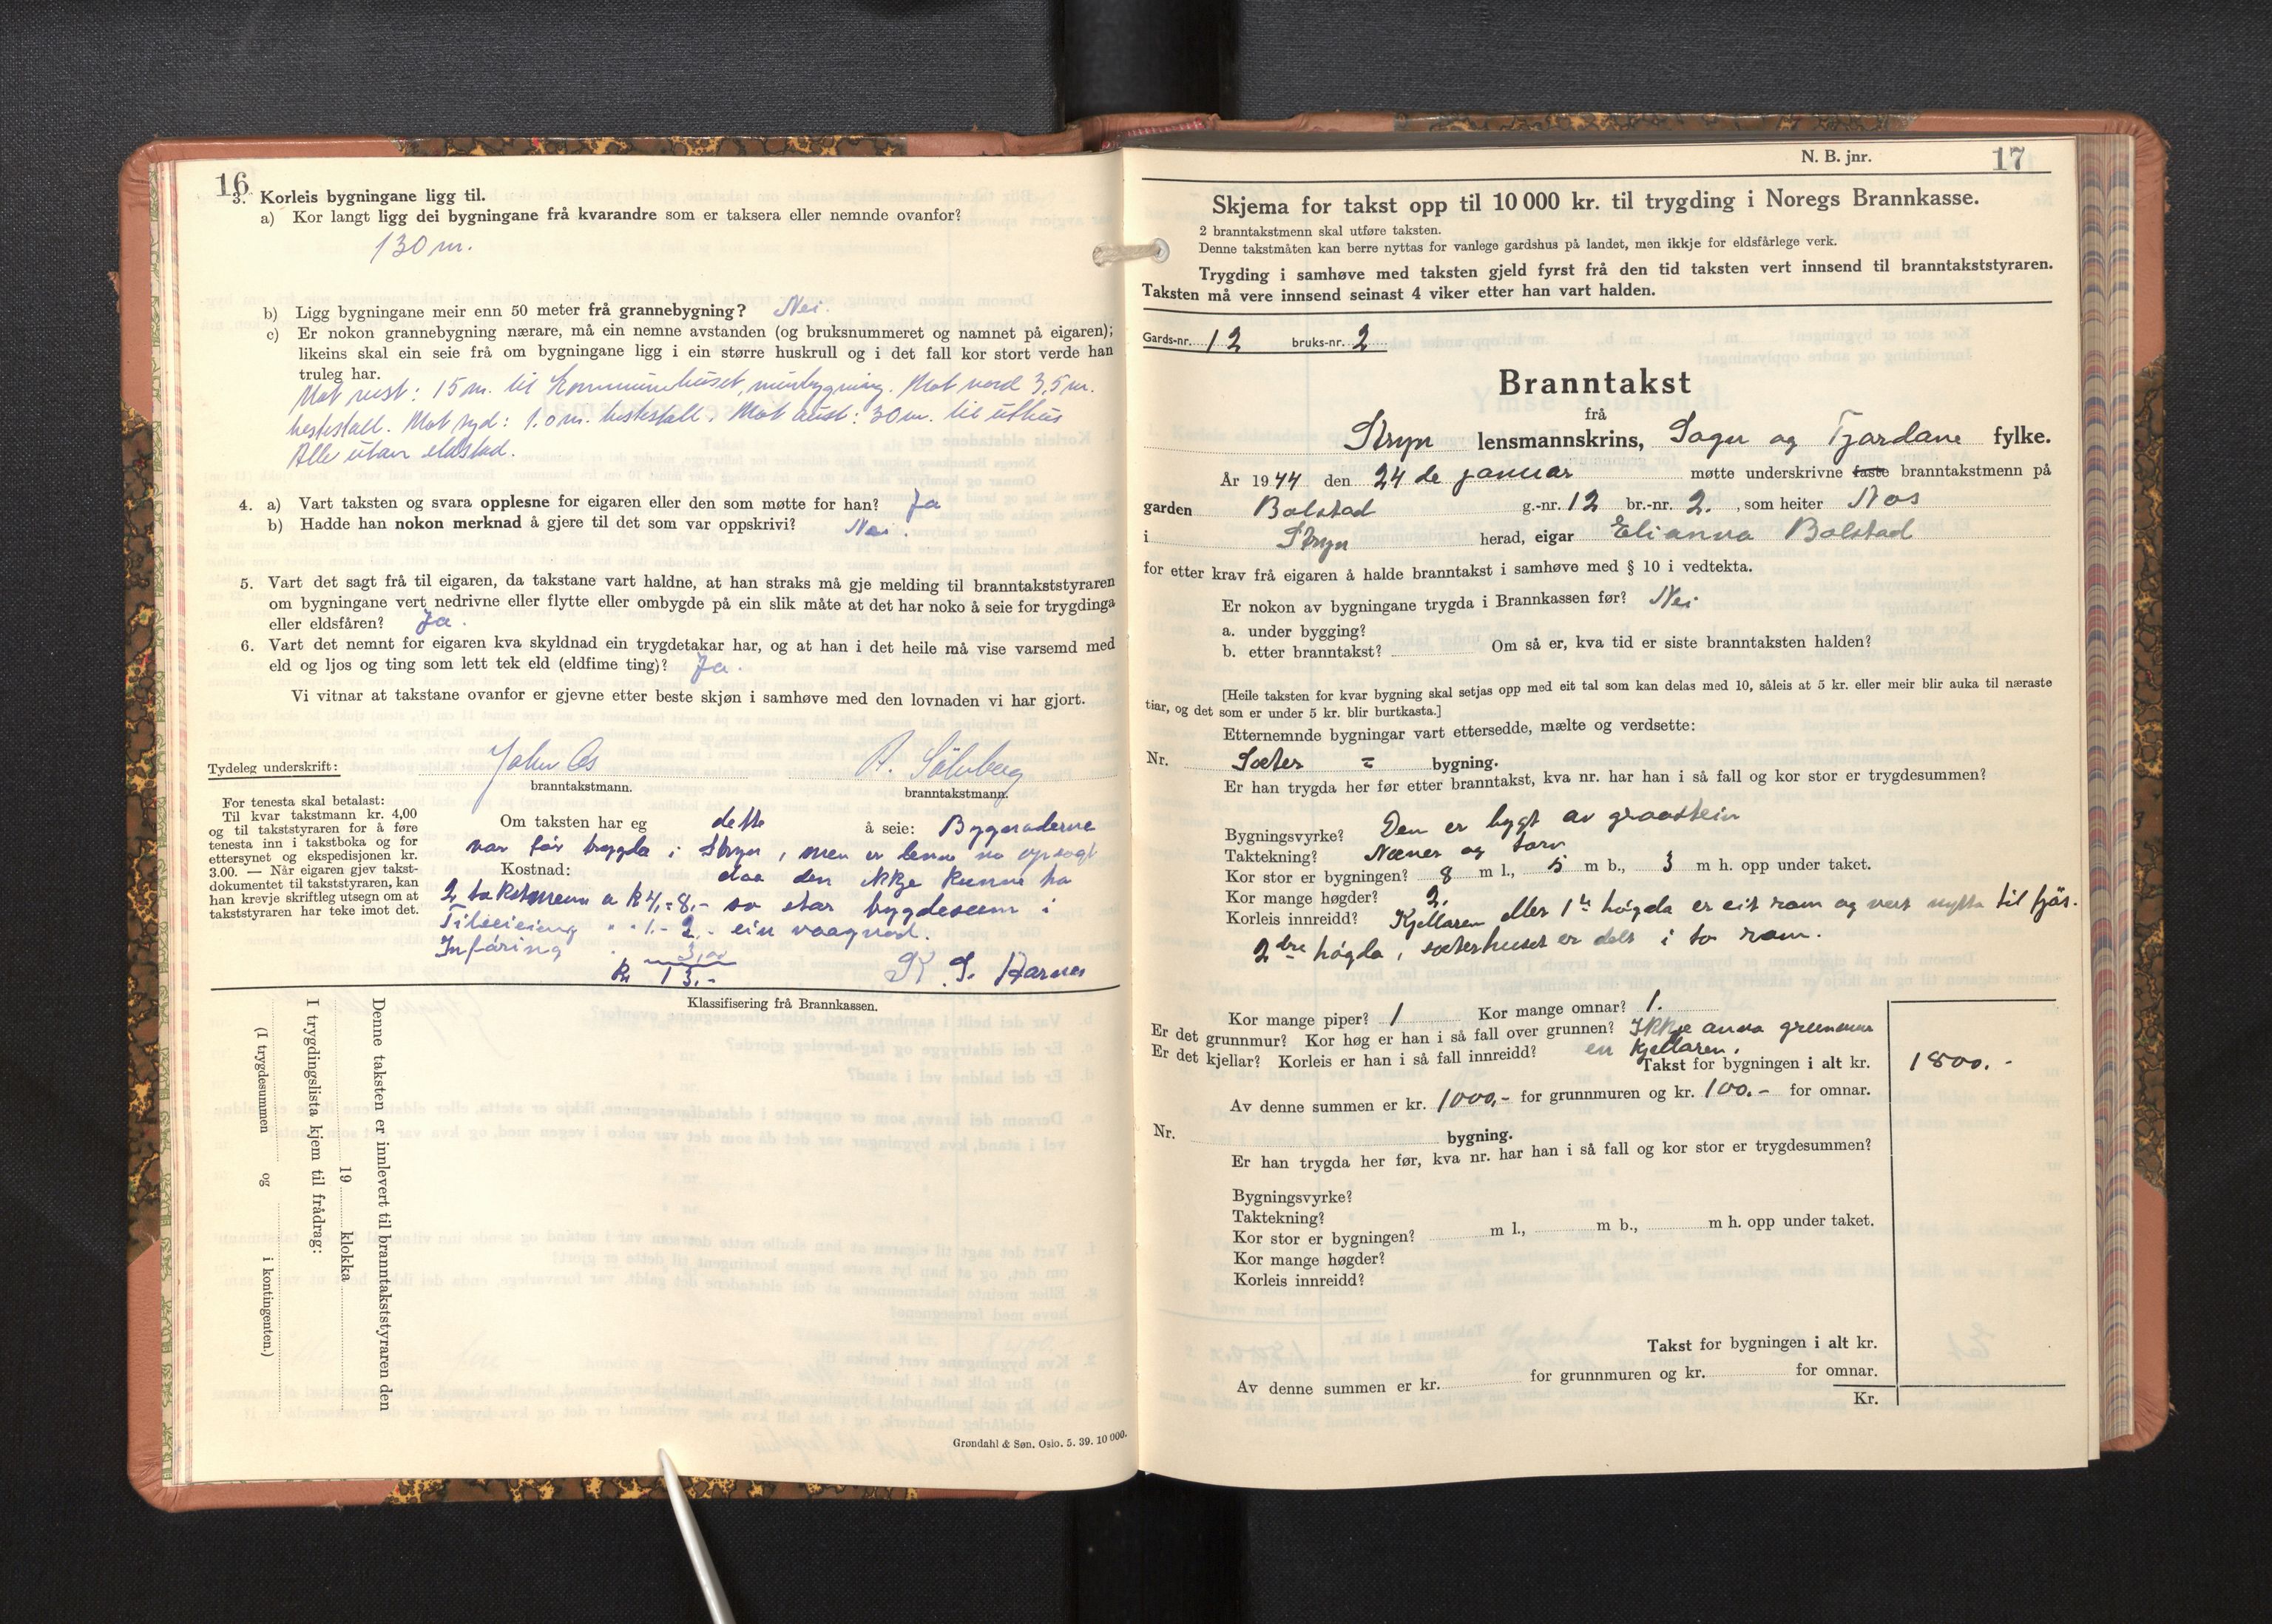 16
3. Korleis bygningane ligg til.
a) Kor langt ligg dei bygningane frå kvarandre som er taksera eller nemnde ovanfor?
130 m.
b) Ligg bygningane meir enn 50 meter frå grannebygning? Nei.
c) Er nokon grannebygning nærare, må ein nemne avstanden (og bruksnummeret og namnet på eigaren);
likeins skal ein seie frå om bygningane ligg i ein større huskrull og i det fall kor stort verde han
truleg har.
Mot vest: 15 m. til kommunehuset, murbygning. Mot nord 3,5 m.
hestestall. Mot syd: 1.0 m. hestestall. Mot aust: 30 m. til uthus
Alle utan eldstad.
4. a) Vart taksten og svara opplesne for eigaren eller den som møtte for han? Ja
b) Hadde han nokon merknad å gjere til det som var oppskrivi? Nei.
5. Vart det sagt frå til eigaren, da takstane vart haldne, at han straks må gje melding til branntakststyraren
om bygningane vert nedrivne eller flytte eller ombygde på ein slik måte at det har noko å seie for trygdinga
eller eldsfåren? Ja.
6. Vart det nemnt for eigaren kva skyldnad ein trygdetakar har, og at han i det heile må vise varsemd med
eld og ljos og ting som lett tek eld (eldfime ting)? Ja.
Vi vitnar at takstane ovanfor er gjevne etter beste skjøn i samhøve med den lovnaden vi har gjort.
Tydeleg underskrift: John Os
branntakstmann. branntakstmann.
For tenesta skal betalast:
Til kvar takstmann kr. 4,00
og til takststyraren for å føre
tenesta inn i takstboka og for
ettersynet og ekspedisjonen kr.
3.00. — Når eigaren gjev takst-
dokumentet til takststyraren, kan
han krevje skriftleg utsegn om at
takststyraren har teke imot det.
Om taksten har eg dette å seie:
var før trygda i Stryn, men er no
Kostnad: daa den ikkje kunne ha
2 takstmenn a kr 4,- = 8,- so stor trygdesum i
1.- 2.- ein vaagnad.
Inføring 3,00
Kr 13.-
Klassifisering frå Brannkassen.
Denne taksten er innlevert til branntakststyraren den
19 klokka
I trygdingslista kjem til frådrag:
(I trygdesummen og i kontingenten.)
Grøndahl & Søn. Oslo. 5. 39. 10 000.
N. B. jnr. 17
Skjema for takst opp til 10 000 kr. til trygding i Noregs Brannkasse.
2 branntakstmenn skal utføre taksten.
Denne takstmåten kan berre nyttas for vanlege gardshus på landet, men ikkje for eldsfårlege verk.
Trygding i samhøve med taksten gjeld fyrst frå den tid taksten vert innsend til branntakststyraren.
Taksten må vere innsend seinast 4 viker etter han vart halden.
Gards-nr. 12 bruks-nr. 2
Branntakst
frå
Stryn lensmannskrins, Sogn og Fjordane fylke.
År 1944 den 24 de januar møtte underskrivne faste branntakstmenn på
garden Bolstad g.-nr. 12 br.-nr. 2. , som heiter Nos
i Stryn herad, eigar Elianna Bolstad
for etter krav frå eigaren å halde branntakst i samhøve med § 10 i vedtekta.
Er nokon av bygningane trygda i Brannkassen før? Nei
a. under bygging?
b. etter branntakst? Om så er, kva tid er siste branntaksten halden?
[Heile taksten for kvar bygning skal setjas opp med eit tal som kan delas med 10, såleis at 5 kr. eller meir blir auka til næraste
tiar, og det som er under 5 kr. blir burtkasta.]
Etternemnde bygningar vart ettersedde, mælte og verdsette:
Nr. Sæter = bygning.
Er han trygda her før etter branntakst, kva nr. har han i så fall og kor stor er trygdesummen?
Bygningsvyrke? Den er bygt av graastein
Taktekning? Næver og torv
Kor stor er bygningen? 8 m l., 5 m b., 3 m h. opp under taket.
Kor mange høgder? 2.
Korleis innreidd? Kjellaren eller 1ste høgda er eit rom og vert nytta til fjøs.
2dre høgda, sæterhuset er delt i to rom.
Kor mange piper? 1 Kor mange omnar? 1.
Er det grunnmur? Kor høg er han i så fall over grunnen? Ikkje anna grunnmur
Er det kjellar? Korleis er han i så fall innreidd? en kjellaren.
Takst for bygningen i alt kr. 1800.-
Av denne summen er kr. 1000,- for grunnmuren og kr. 100.- for omnar.
Nr. bygning.
Er han trygda her før, kva nr. har han i så fall og kor stor er trygdesummen?
Bygningsvyrke?
Taktekning?
Kor stor er bygningen? m l., m b., m h. opp under taket.
Kor mange høgder?
Korleis innreidd?
Takst for bygningen i alt kr.
Av denne summen er kr. for grunnmuren og kr. for omnar.
Kr.